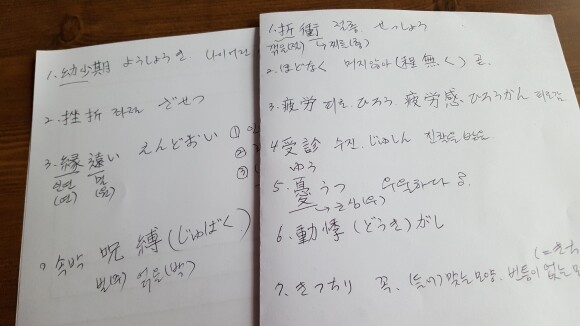 1. 幼少期 ようしょうき 나이어린
2. 挫折 좌절 ざせつ
3. 縁遠い えんどおい ①
인연 멀 ②
(연) (원) ③
7. 속박 呪縛 (じゅばく)
빌(주) 얽을(박)
1. 折衝 절충 せっしょう
꺾을(절) 찌를(충)
2. ほどなく 머지않아 (程無く) 곧.
3. 疲労 피로. ひろう 疲労感. ひろうかん 피로감
4. 受診 수진. じゅしん 진찰을 받음
ゆう
5. 憂うつ 우울하다
→ 근심(우)
6. 動悸 (どうき)がし
7. きっちり 꼭. (들어)맞는 모양. 빈틈이 없는 모